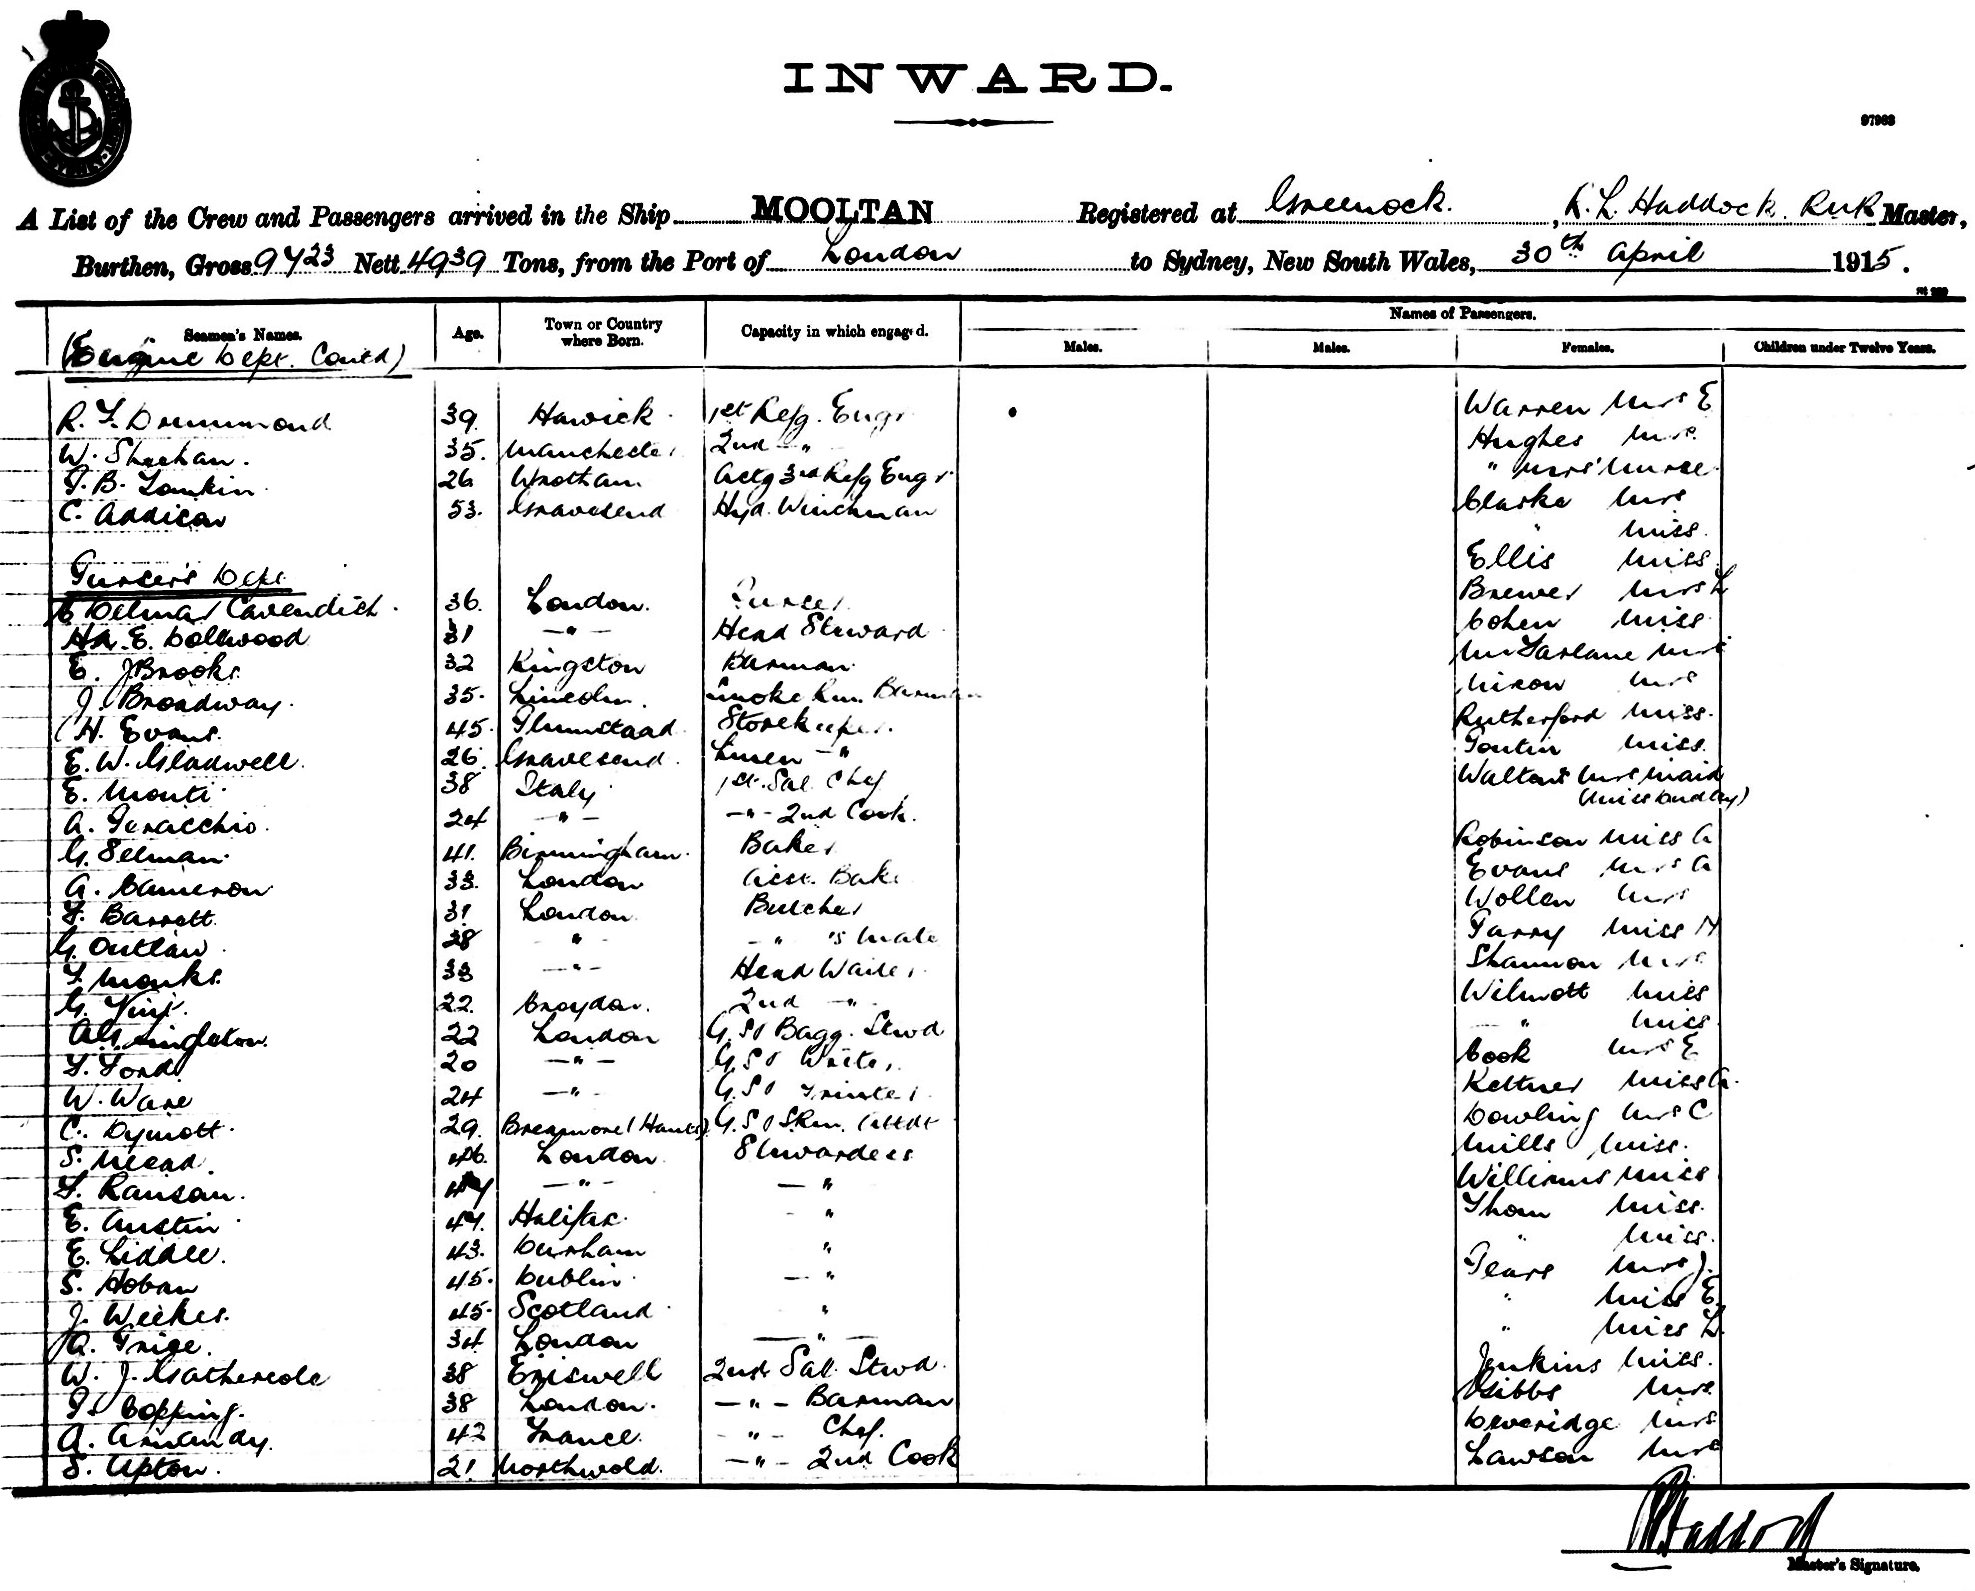 INWARD.
97963
A List of the Crew and Passengers arrived in the Ship MOOLTAN Registered at Greenock. , R. L. Haddock. RNR Master,
Burthen, Gross 9723 Nett 4939 Tons, from the Port of London to Sydney, New South Wales, 30th April 1915.
Names of Passengers.
Seamen's Names. Age. Town or Country where Born. Capacity in which engaged. Males. Males. Females. Children under Twelve Years.
(Engine Dept. Contd)
R. F. Drummond 39 Hawick 1st Refg. Engr Warren Mrs E
W. Sheehan. 35. Manchester 2nd " Hughes Mrs.
B. 26 Wrotham Actg 3rd Refg Engr " Mrs' Nurse
C. Addison 53. Gravesend Hyd. Winchman Clarke Mrs
" Miss.
Ellis Miss
Purser's Dept.
Delmar Cavendish. 36. London. Purser. Brewer Mrs L
E. Dollwood 31 -"- Head Steward Cohen Miss
E. J Brooks. 32 Kingston Barman. McFarlane Mrs
J. Broadway. 35. Lincoln. Smoke Rm. Barman Nixon Mrs
H. Evans. 45. Plumstead Storekeeper. Rutherford Miss.
E. W. Gladwell. 26. Gravesend. Linen -" Miss.
E. Monti 38 Italy 1st Sal. Chef Walton's Mrs Maid
(Miss Dudley)
A. Peracchio. 24 -"- -"- 2nd Cook.
G. Selman. 41. Birmingham. Baker Robinson Miss A
A. Cameron 33. London Asst. Baker Evans Mrs A
F. Barrett. 31 London. Butcher Wollen Mrs
G. Outlaw. 28 -"- -"- 's Mate Parry Miss M
F. Monks. 33 -"- Head Waiter. Shannon Mrs
G. 22. Croydon. 2nd -"- Wilmott Miss
Singleton. 22 London G.S. Bagg. Stwd -"- Miss
F. Ford 20 -"- G.S. Writer. Cook Mrs E
W. Ware 24 -"- G.S. Printer. Kettner Miss A.
C. Dymott. 29. Breamore (Hants) G.S. S.Rm. Attdt Dowling Mrs C
S. Mead. 46. London. Stewardess Mills Miss.
F. Ranson. 47 -"- -" Williams Miss
E. Austin 47. Halifax. " Thom Miss.
E. Liddle. 43. Durham " " Miss.
S. Hoban 45. Dublin. -" Pears Mrs J.
J. Weekes. 45. Scotland. " " Miss E.
A. Price. 34 London -"- " Miss L.
W. J. Gathercole 38 Eriswell 2nd Sal. Stwd. Jenkins Miss.
Copping. 38 London. -"- Barman Gibbs Mrs
A. Armandy. 42 France. -"- Chef. Deveridge Mrs
S. Upton. 21 Northwold. -"- 2nd Cook Lawson Mrs
Haddock
Master's Signature.